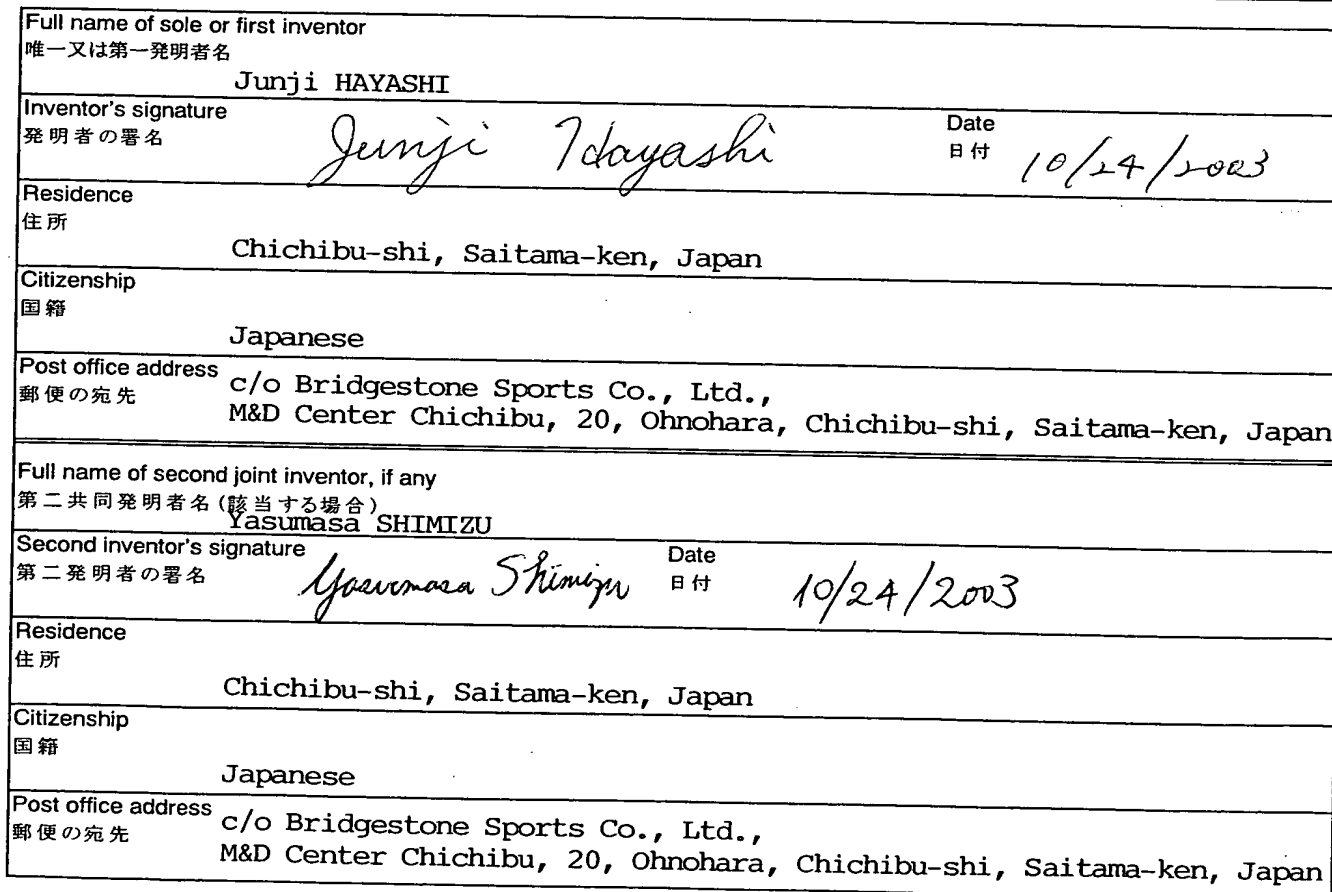 Full name of sole or first inventor
唯一又は第一発明者名
Junji HAYASHI
Inventor's signature
発明者の署名
Junji Hayashi
Date
日付
10/24/2003
Residence
住所
Chichibu-shi, Saitama-ken, Japan
Citizenship
国籍
Japanese
Post office address
郵便の宛先
c/o Bridgestone Sports Co., Ltd.,
M&D Center Chichibu, 20, Ohnohara, Chichibu-shi, Saitama-ken, Japan
Full name of second joint inventor, if any
第二共同発明者名 (該当する場合)
Yasumasa SHIMIZU
Second inventor's signature
第二発明者の署名
Yasumasa Shimizu
Date
日付
10/24/2003
Residence
住所
Chichibu-shi, Saitama-ken, Japan
Citizenship
国籍
Japanese
Post office address
郵便の宛先
c/o Bridgestone Sports Co., Ltd.,
M&D Center Chichibu, 20, Ohnohara, Chichibu-shi, Saitama-ken, Japan